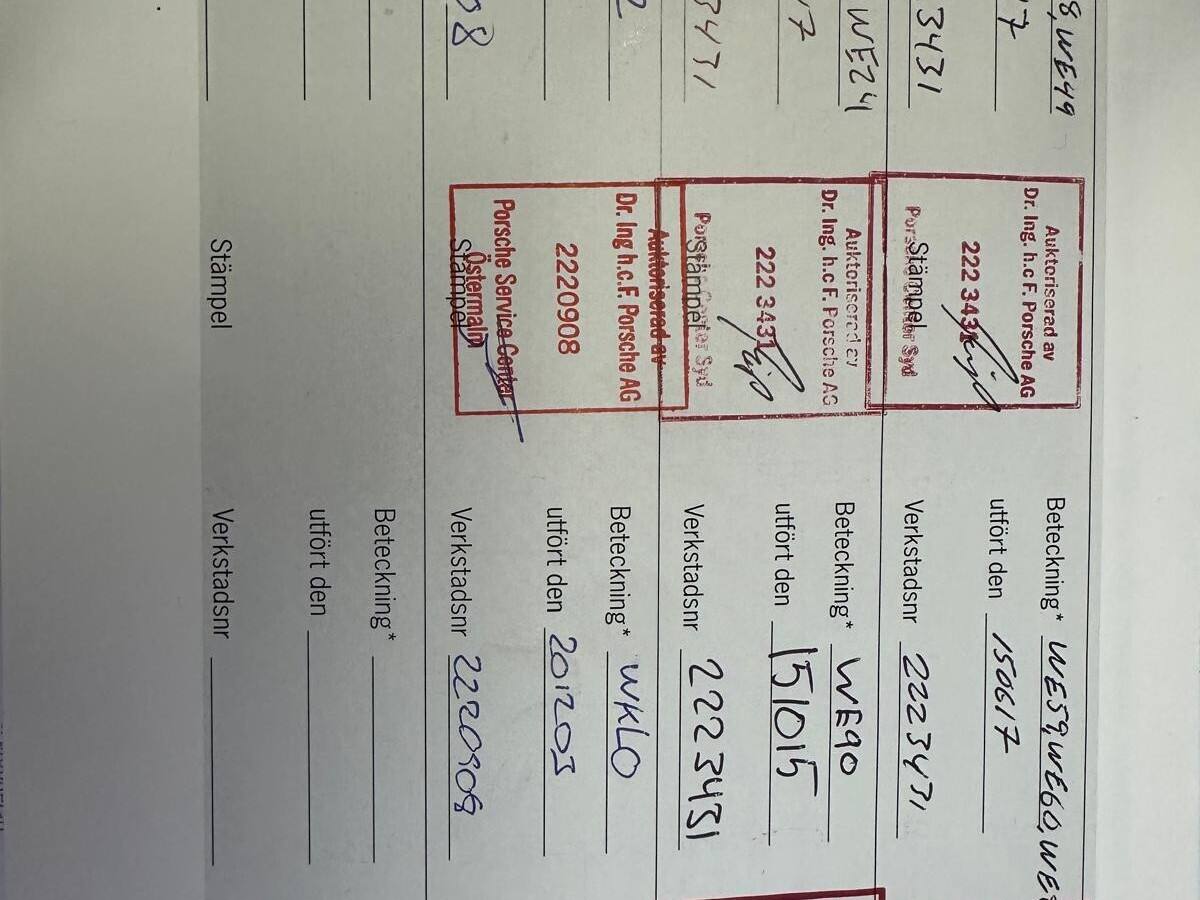 8,WE49
17
3431
Auktoriserad av
Dr. Ing. h.c F. Porsche AG
222 3431
Porsche Center Syd
Stämpel
Beteckning* WE59,WE60,WE
utfört den 150617
Verkstadsnr 2223431
WE24
17
3431
Auktoriserad av
Dr. Ing. h.c F. Porsche AG
222 3431
Porsche Center Syd
Stämpel
Beteckning* WE90
utfört den 151015
Verkstadsnr 2223431
2
08
Auktoriserad av
Dr. Ing h.c.F. Porsche AG
2220908
Porsche Service Center
Östermalm
Stämpel
Beteckning* WKLO
utfört den 201203
Verkstadsnr 2220908
Beteckning*
utfört den
Stämpel
Verkstadsnr